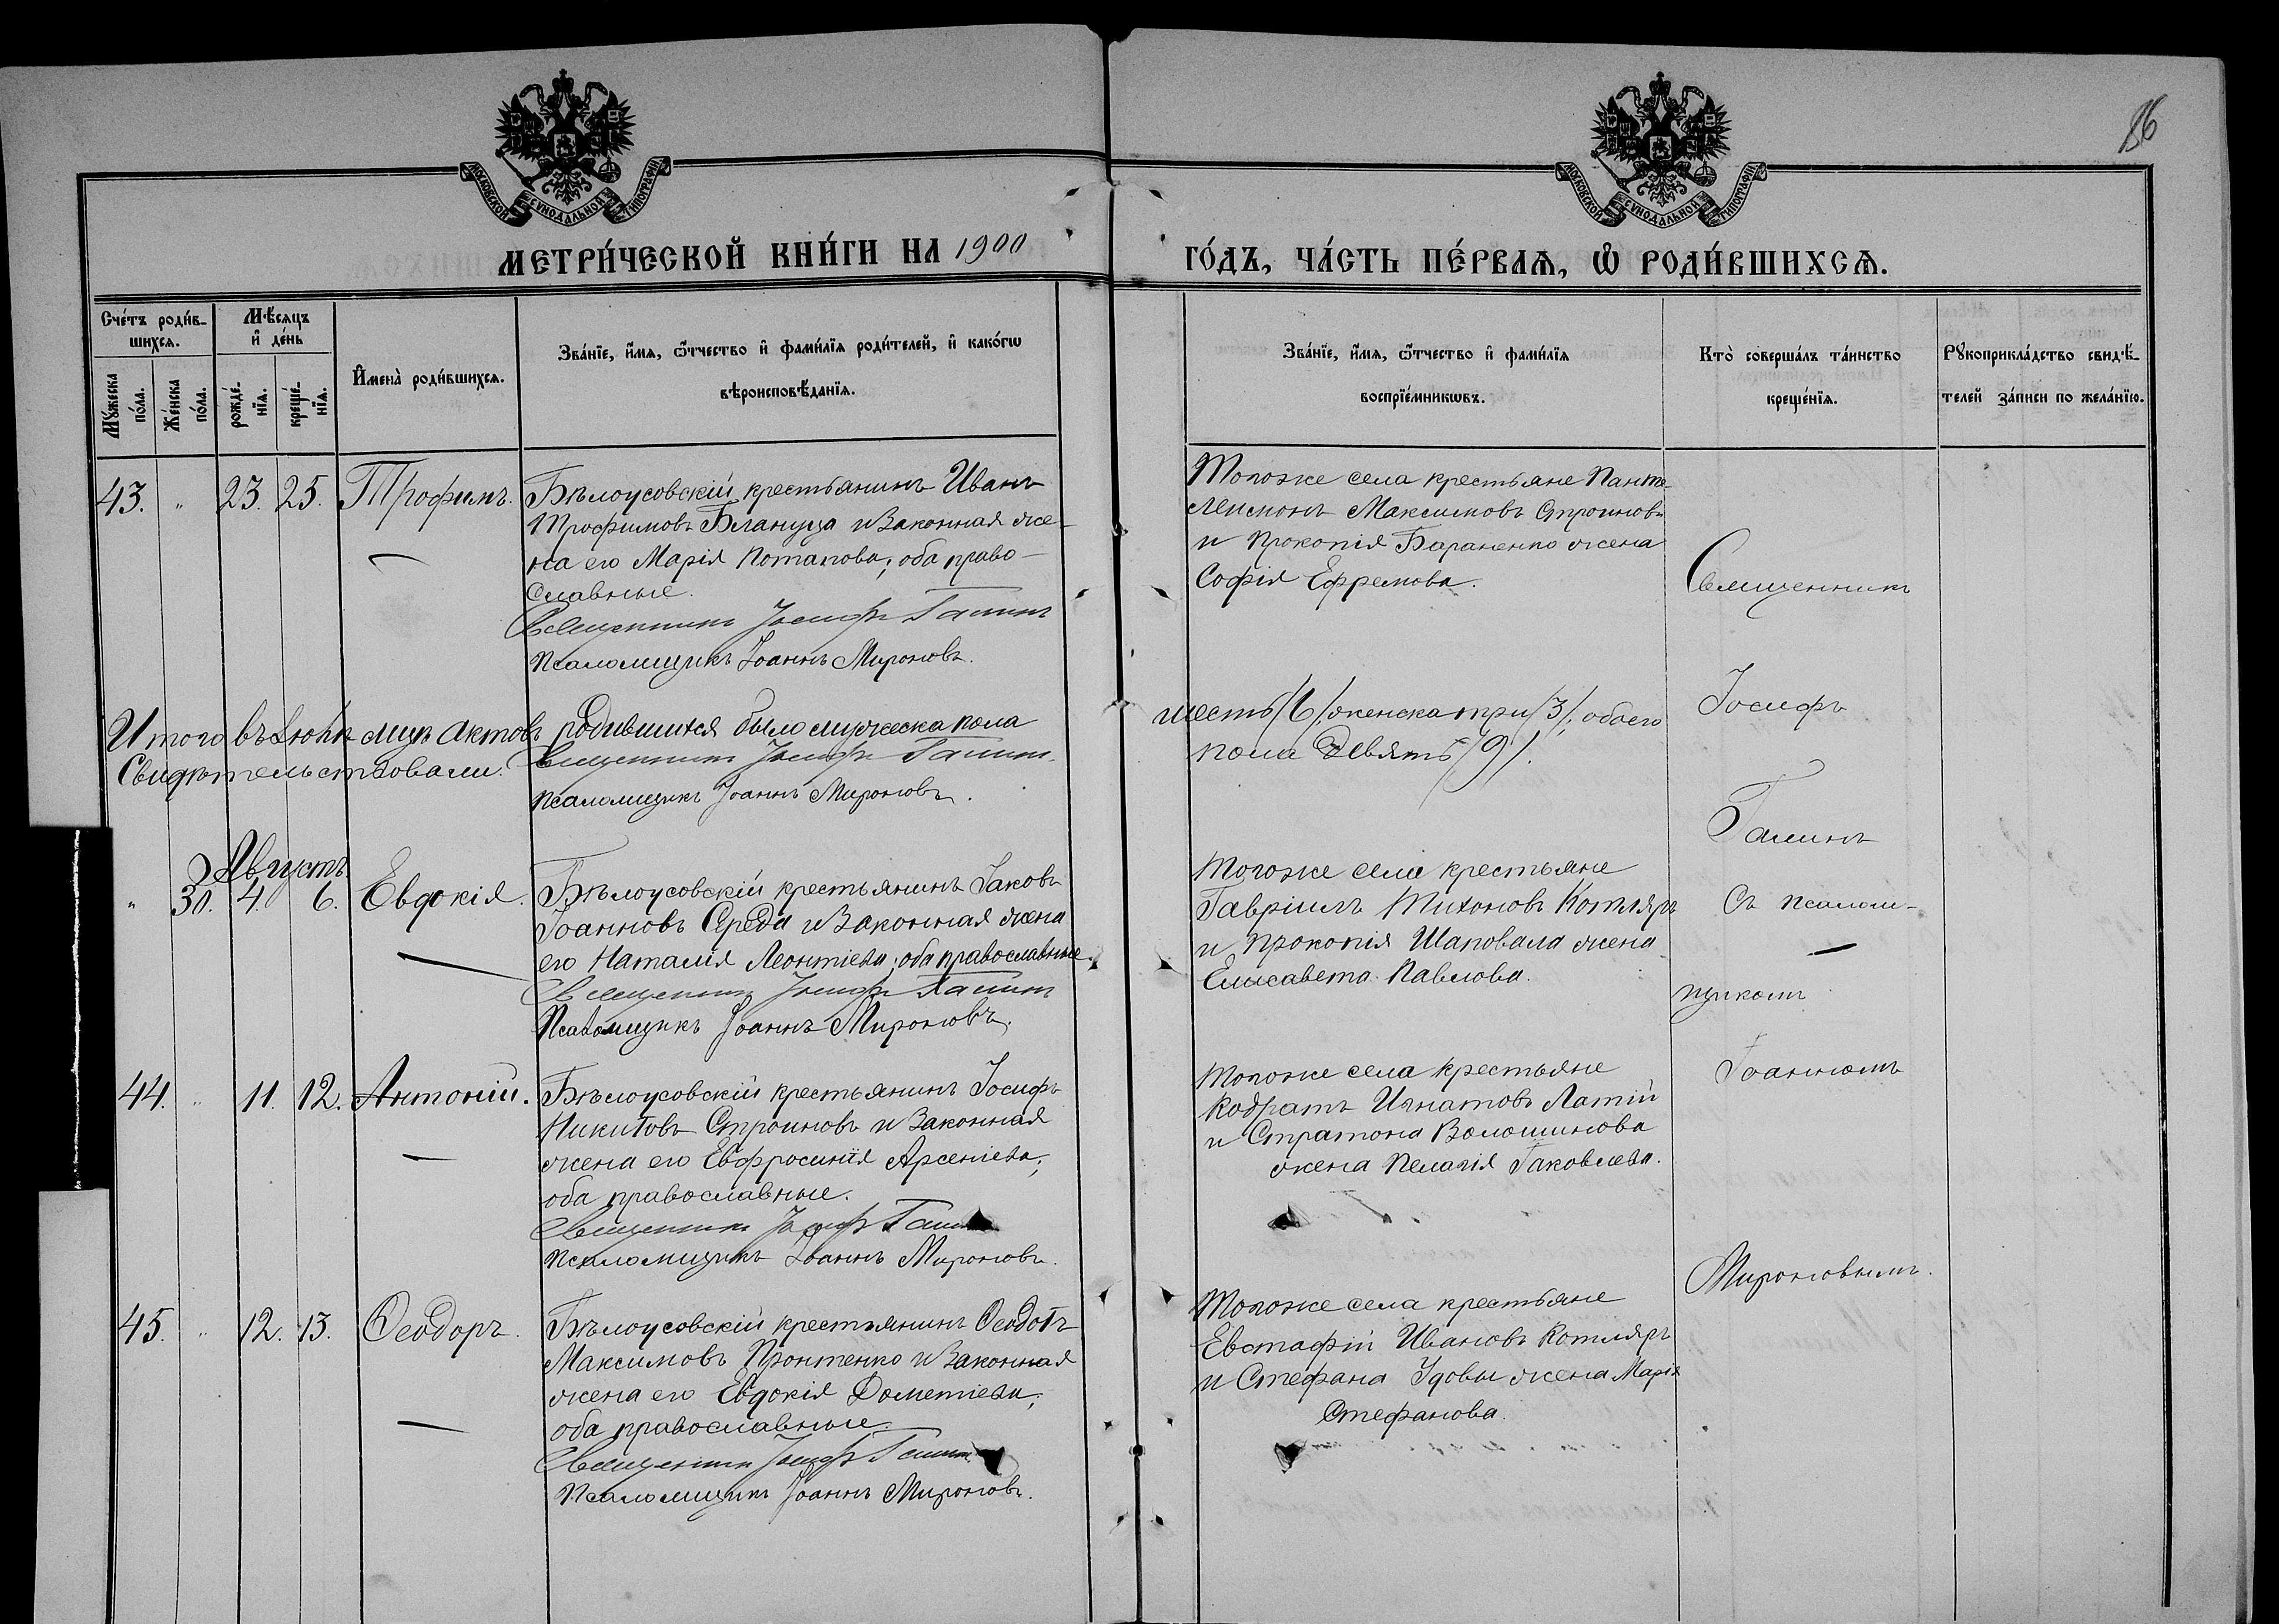 86
МОСКОВСКОЙ СУНОДАЛЬНОЙ ТИПОГРАФІИ
МОСКОВСКОЙ СУНОДАЛЬНОЙ ТИПОГРАФІИ
МЕТРИ́ЧЕСКОЙ КНИ́ГИ НА 1900
ГО́ДЪ, ЧА́СТЬ ПЕ́РВАѦ, Ѡ РОДИ́ВШИХСѦ.
Сче́тъ роди́в-
шихсѧ.
Мꙋ́жеска
по́ла.
Же́нска
по́ла.
Мѣ́сѧцъ
и҆ де́нь
рожде́-
нїѧ.
креще́-
нїѧ.
И҆мена̀ роди́вшихсѧ.
Зва́нїе, и҆́мѧ, ѻ҆́тчество и҆ фами́лїѧ роди́телей, и҆ како́гѡ
вѣроисповѣ́данїѧ.
Зва́нїе, и҆́мѧ, ѻ҆́тчество и҆ фами́лїѧ
воспрїе́мникѡвъ.
Кто̀ соверша́лъ та́инство
креще́нїѧ.
Рꙋкоприкла́дство свидѣ́-
телей за́писи по жела́нїю.
43. " 23. 25. Трофимъ.
Бѣлоусовскій крестьянинъ Иванъ
Трофимовъ Блануца и законная же-
на его Марія Потапова; оба право-
славные.
Священникъ Іосифъ Галинъ
Псаломщикъ Іоаннъ Мироновъ.
Тогоже села крестьяне Панте-
леимонъ Максимовъ Строиновъ
и Прокопія Бараненко жена
Софія Ефремова.
Итого въ Іюлѣ мцѣ актовъ родившихся было мужеска пола
шесть /6/, женска три /3/, обоего
пола девять /9/.
Свидѣтельствовали: Священникъ Іосифъ Галинъ.
Псаломщикъ Іоаннъ Мироновъ.
Августъ
" 30. 4. 6. Евдокія.
Бѣлоусовскій крестьянинъ Іаковъ
Іоанновъ Середа и законная жена
его Наталія Леонтіева; оба православные.
Священникъ Іосифъ Галинъ
Псаломщикъ Іоаннъ Мироновъ.
Тогоже села крестьяне
Гавріилъ Тихоновъ Котляръ
и Прокопія Шаповала жена
Елисавета Павлова.
44. " 11. 12. Антоній.
Бѣлоусовскій крестьянинъ Іосифъ
Никитовъ Строиновъ и законная
жена его Евфросинія Арсеніева;
оба православные.
Священникъ Іосифъ Галинъ
Псаломщикъ Іоаннъ Мироновъ.
Тогоже села крестьяне
Кодратъ Игнатовъ Латій
и Стратона Волошинова
жена Пелагія Іаковлева.
45. " 12. 13. Ѳеодоръ.
Бѣлоусовскій крестьянинъ Ѳеодотъ
Максимовъ Пронтенко и законная
жена его Евдокія Дометіева;
оба православные.
Священникъ Іосифъ Галинъ
Псаломщикъ Іоаннъ Мироновъ.
Тогоже села крестьяне
Евстафій Ивановъ Котляръ
и Стефана Удовы жена Марія
Стефанова.
Священникъ
Іосифъ
Галинъ
съ псалом-
щикомъ
Іоанномъ
Мироновымъ.